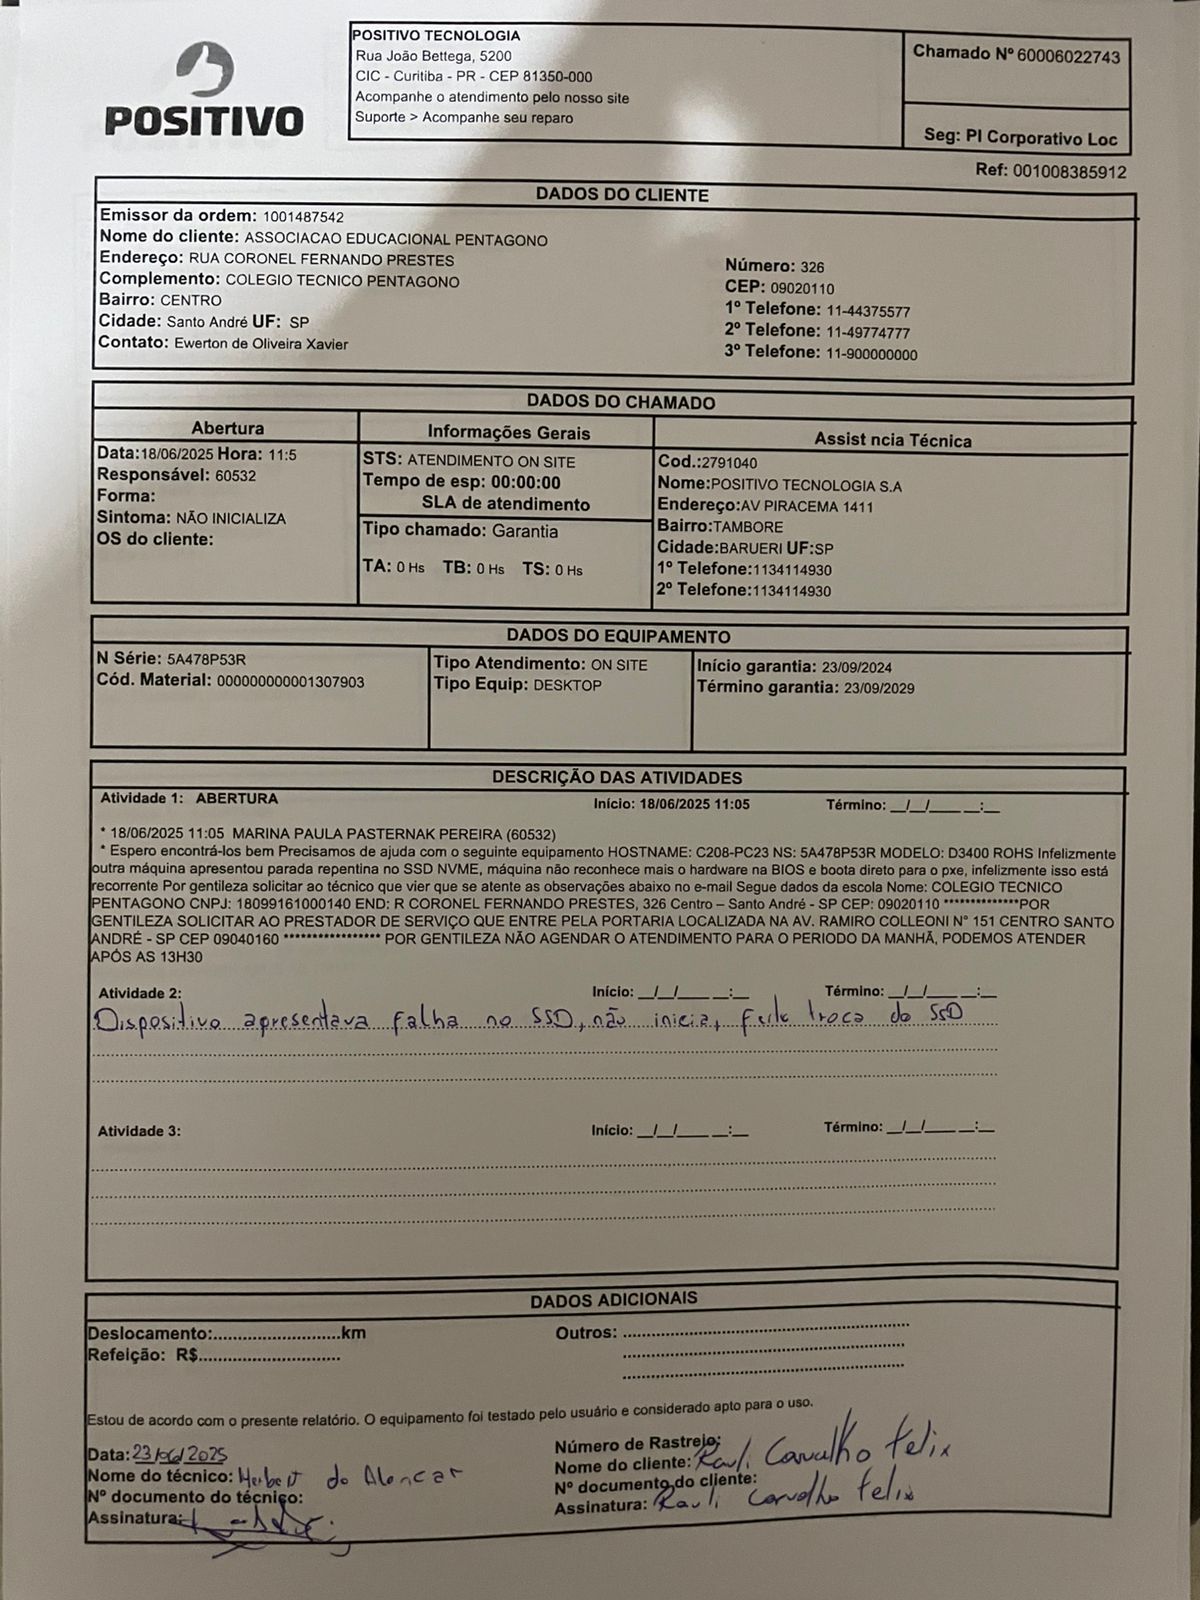 POSITIVO
POSITIVO TECNOLOGIA
Rua João Bettega, 5200
CIC - Curitiba - PR - CEP 81350-000
Acompanhe o atendimento pelo nosso site
Suporte > Acompanhe seu reparo
Chamado Nº 60006022743
Seg: PI Corporativo Loc
Ref: 001008385912
DADOS DO CLIENTE
Emissor da ordem: 1001487542
Nome do cliente: ASSOCIACAO EDUCACIONAL PENTAGONO
Endereço: RUA CORONEL FERNANDO PRESTES
Complemento: COLEGIO TECNICO PENTAGONO
Bairro: CENTRO
Cidade: Santo André UF: SP
Contato: Ewerton de Oliveira Xavier
Número: 326
CEP: 09020110
1º Telefone: 11-44375577
2º Telefone: 11-49774777
3º Telefone: 11-900000000
DADOS DO CHAMADO
Abertura
Data:18/06/2025 Hora: 11:5
Responsável: 60532
Forma:
Sintoma: NÃO INICIALIZA
OS do cliente:
Informações Gerais
STS: ATENDIMENTO ON SITE
Tempo de esp: 00:00:00
SLA de atendimento
Tipo chamado: Garantia
TA: 0 Hs TB: 0 Hs TS: 0 Hs
Assist ncia Técnica
Cod.:2791040
Nome:POSITIVO TECNOLOGIA S.A
Endereço:AV PIRACEMA 1411
Bairro:TAMBORE
Cidade:BARUERI UF:SP
1º Telefone:1134114930
2º Telefone:1134114930
DADOS DO EQUIPAMENTO
N Série: 5A478P53R
Cód. Material: 000000000001307903
Tipo Atendimento: ON SITE
Tipo Equip: DESKTOP
Início garantia: 23/09/2024
Término garantia: 23/09/2029
DESCRIÇÃO DAS ATIVIDADES
Atividade 1: ABERTURA Início: 18/06/2025 11:05 Término: __/__/____ __:__
* 18/06/2025 11:05 MARINA PAULA PASTERNAK PEREIRA (60532)
* Espero encontrá-los bem Precisamos de ajuda com o seguinte equipamento HOSTNAME: C208-PC23 NS: 5A478P53R MODELO: D3400 ROHS Infelizmente
outra máquina apresentou parada repentina no SSD NVME, máquina não reconhece mais o hardware na BIOS e boota direto para o pxe, infelizmente isso está
recorrente Por gentileza solicitar ao técnico que vier que se atente as observações abaixo no e-mail Segue dados da escola Nome: COLEGIO TECNICO
PENTAGONO CNPJ: 18099161000140 END: R CORONEL FERNANDO PRESTES, 326 Centro – Santo André - SP CEP: 09020110 *************POR
GENTILEZA SOLICITAR AO PRESTADOR DE SERVIÇO QUE ENTRE PELA PORTARIA LOCALIZADA NA AV. RAMIRO COLLEONI N° 151 CENTRO SANTO
ANDRÉ - SP CEP 09040160 ***************** POR GENTILEZA NÃO AGENDAR O ATENDIMENTO PARA O PERIODO DA MANHÃ, PODEMOS ATENDER
APÓS AS 13H30
Atividade 2: Início: __/__/____ __:__ Término: __/__/____ __:__
Dispositivo apresentava falha no SSD, não inicia, feito troca do SSD
Atividade 3: Início: __/__/____ __:__ Término: __/__/____ __:__
DADOS ADICIONAIS
Deslocamento:..........................km
Refeição: R$.............................
Outros:
Estou de acordo com o presente relatório. O equipamento foi testado pelo usuário e considerado apto para o uso.
Data:23/06/2025
Nome do técnico: Herbert de Alencar
Nº documento do técnico:
Assinatura:
Número de Rastreio:
Nome do cliente: Rauli Carvalho Felix
Nº documento do cliente:
Assinatura: Rauli Carvalho Felix